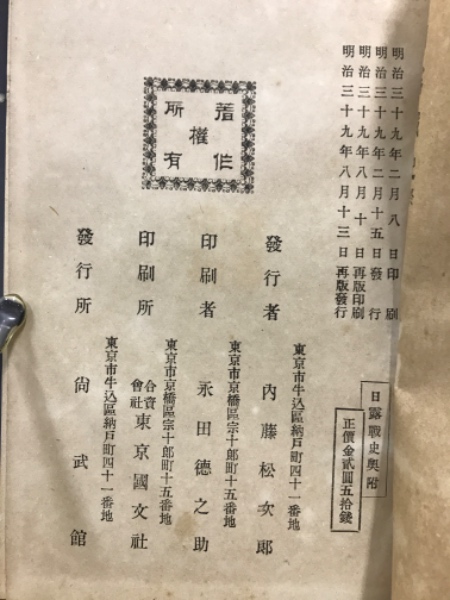 日露戰史奧附
正價金貳圓五拾錢
明治三十九年二月八日印刷
明治三十九年二月十五日發行
明治三十九年八月十日再版印刷
明治三十九年八月十三日再版發行
著作權所有
東京市牛込區納戸町四十一番地
發行者 內藤松次郎
東京市京橋區宗十郎町十五番地
印刷者 永田德之助
東京市京橋區宗十郎町十五番地
印刷所 合資會社東京國文社
東京市牛込區納戸町四十一番地
發行所 尙武館